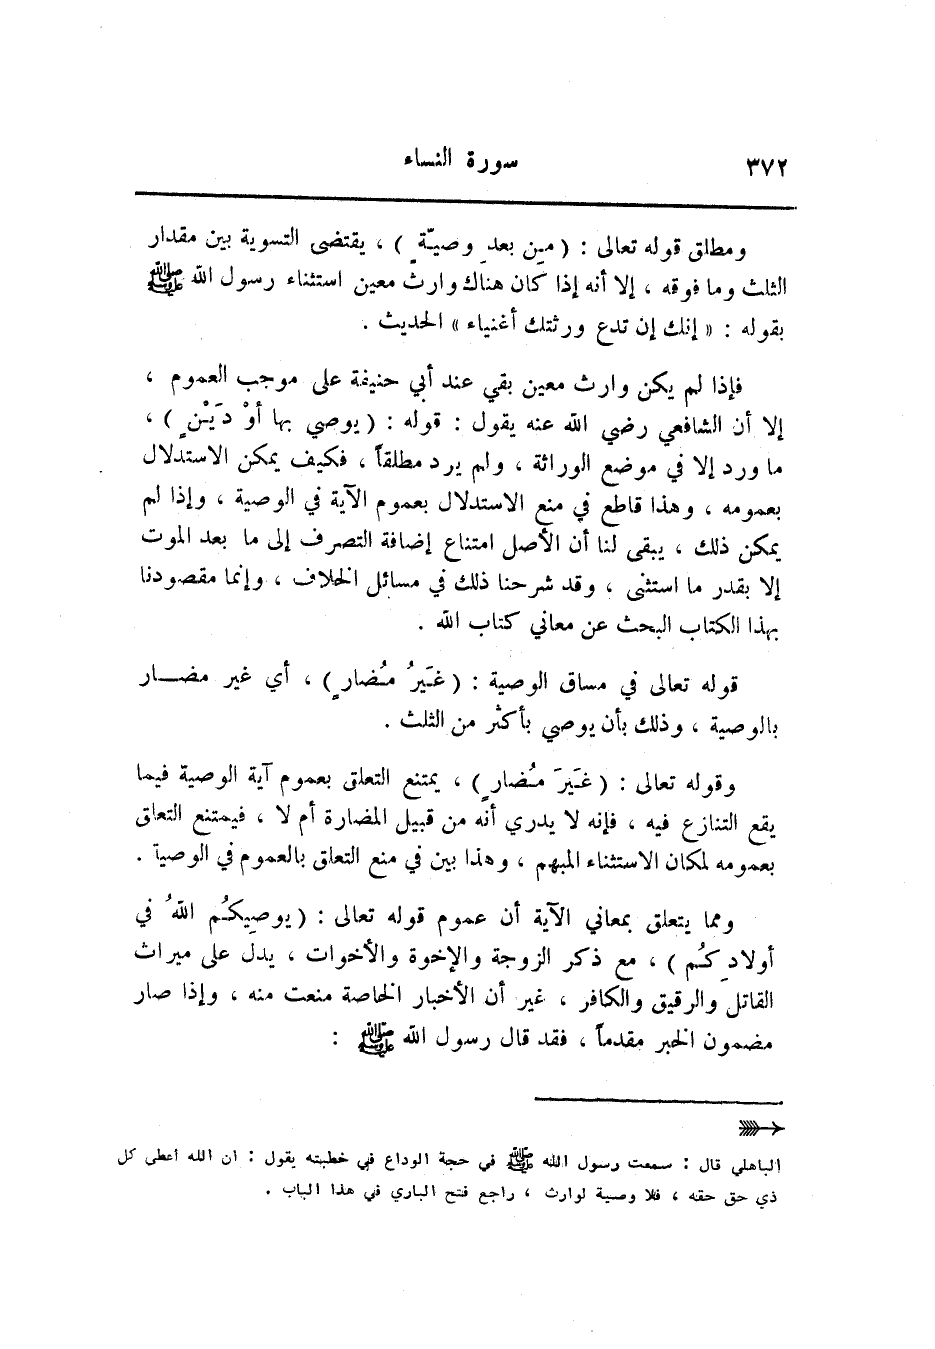 ٣٧٢
سورة النساء
ومطلق قوله تعالى : ( مِن بعدِ وصيّةٍ ) ، يقتضى التسوية بين مقدار
الثلث وما فوقه ، إلا أنه إذا كان هناك وارث معين استثناء رسول الله ﷺ
بقوله : « إنك إن تدع ورثتك أغنياء » الحديث .
فإذا لم يكن وارث معين بقي عند أبي حنيفة على موجب العموم ،
إلا أن الشافعي رضي الله عنه يقول : قوله : ( يوصي بها أوْ دَيْنٍ ) ،
ما ورد إلا في موضع الوراثة ، ولم يرد مطلقاً ، فكيف يمكن الاستدلال
بعمومه ، وهذا قاطع في منع الاستدلال بعموم الآية في الوصية ، وإذا لم
يمكن ذلك ، يبقى لنا أن الأصل امتناع إضافة التصرف إلى ما بعد الموت
إلا بقدر ما استثنى ، وقد شرحنا ذلك في مسائل الخلاف ، وإنما مقصودنا
بهذا الكتاب البحث عن معاني كتاب الله .
قوله تعالى في مساق الوصية : ( غَيَرُ مُضارٍ ) ، أي غير مضـــار
بالوصية ، وذلك بأن يوصي بأكثر من الثلث .
وقوله تعالى : ( غَيَرَ مُضارٍ ) ، يمتنع التعلق بعموم آية الوصية فيما
يقع التنازع فيه ، فإنه لا يدري أنه من قبيل المضارة أم لا ، فيمتنع التعلق
بعمومه لمكان الاستثناء المبهم ، وهذا بين في منع التعلق بالعموم في الوصية .
ومما يتعلق بمعاني الآية أن عموم قوله تعالى : ( يوصِيكُم اللهُ في
أولادِكُم ) ، مع ذكر الزوجة والإخوة والأخوات ، يدل على ميراث
القاتل والرقيق والكافر ، غير أن الأخبار الخاصة منعت منه ، وإذا صار
مضمون الخبر مقدماً ، فقد قال رسول الله ﷺ :
الباهلي قال : سمعت رسول الله ﷺ في حجة الوداع في خطبته يقول : ان الله أعطى كل
ذي حق حقه ، فلا وصية لوارث ، راجع فتح الباري في هذا الباب .